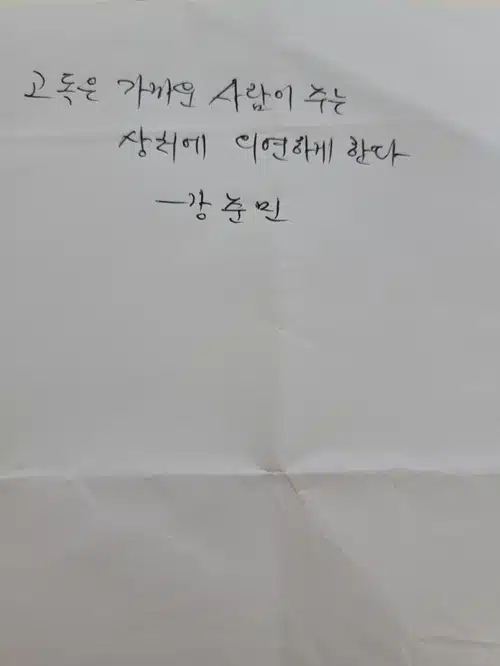 고독은 가까운 사람이 주는
상처에 의연하게 한다
- 강준민